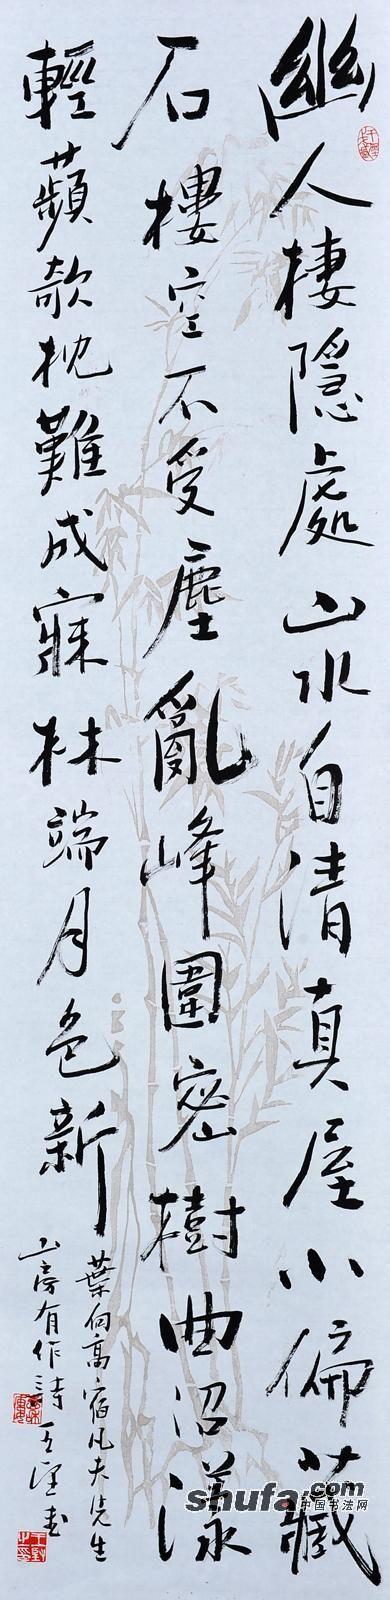 幽人棲隱處山水自清真屋小偏藏
石樓空不受塵亂峰圍密樹曲沼漾
輕蘋欹枕難成寐林端月色新
葉向高宿凡夫先生
山房有作詩
shufa.com
中国书法网